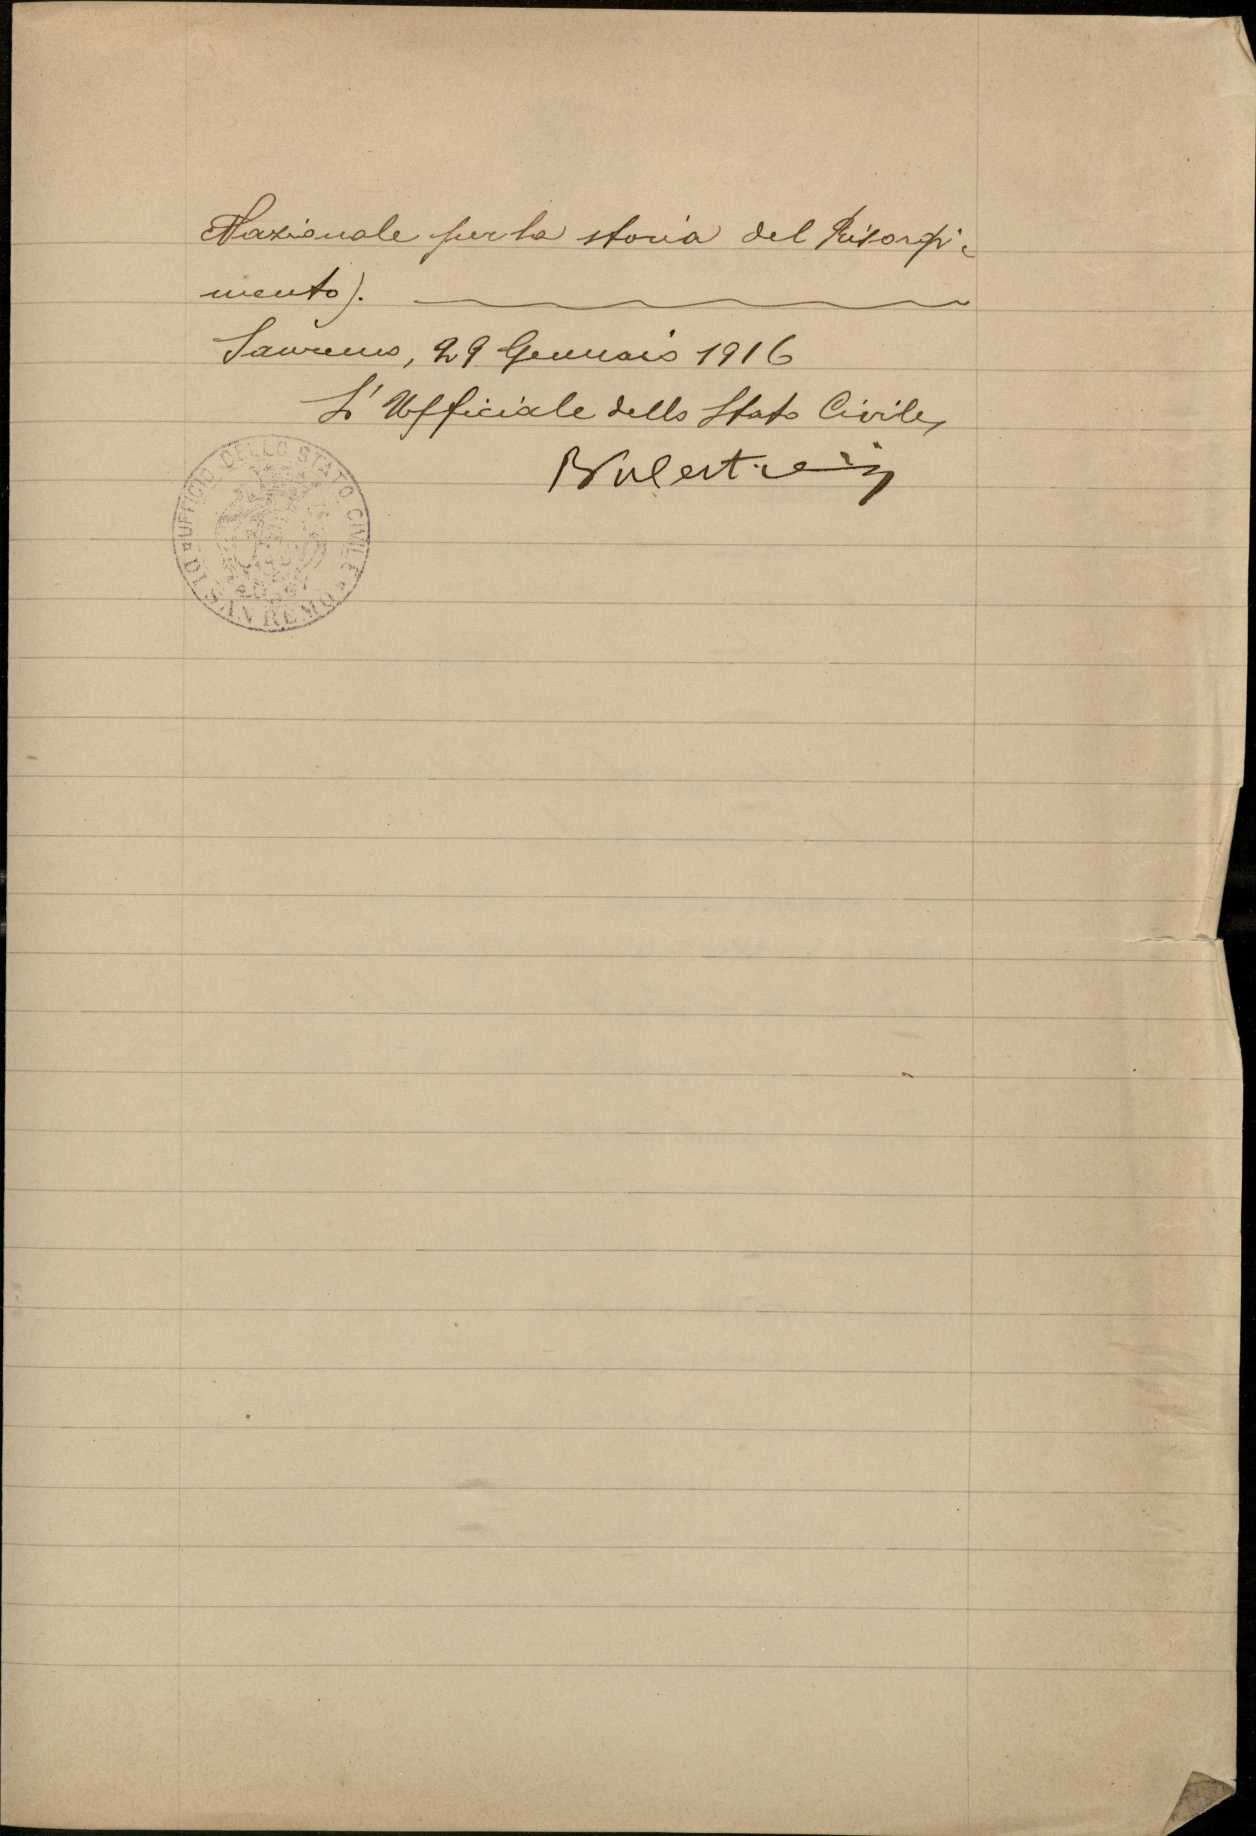 Nazionale per la storia del Risorgi-
mento).
Sanremo, 29 Gennaio 1916
L'Ufficiale dello Stato Civile,
UFFICIO DELLO STATO CIVILE
DI SAN REMO